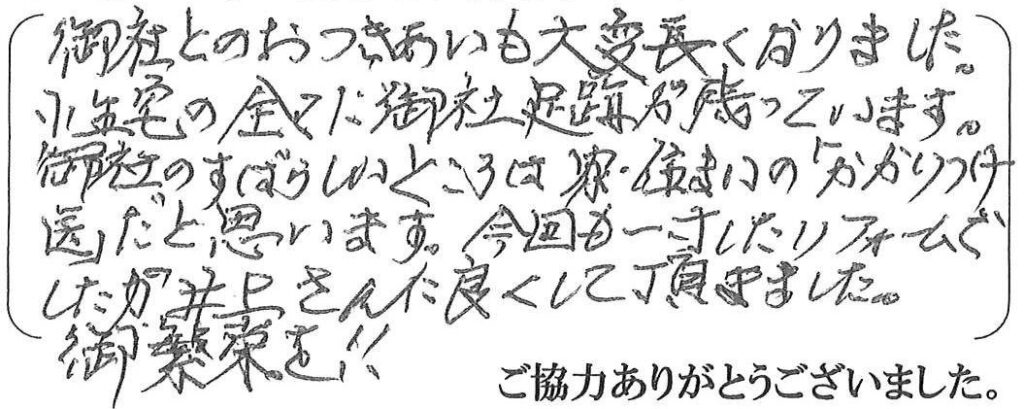 御社とのおつきあいも大変長くなりました。
小生宅の全てに御社足跡が残っています。
御社のすばらしいところは家・住まいの「かかりつけ
医」だと思います。今回も一寸したリフォームで
したが井上さんに良くして頂きました。
御繁栄を!!
ご協力ありがとうございました。